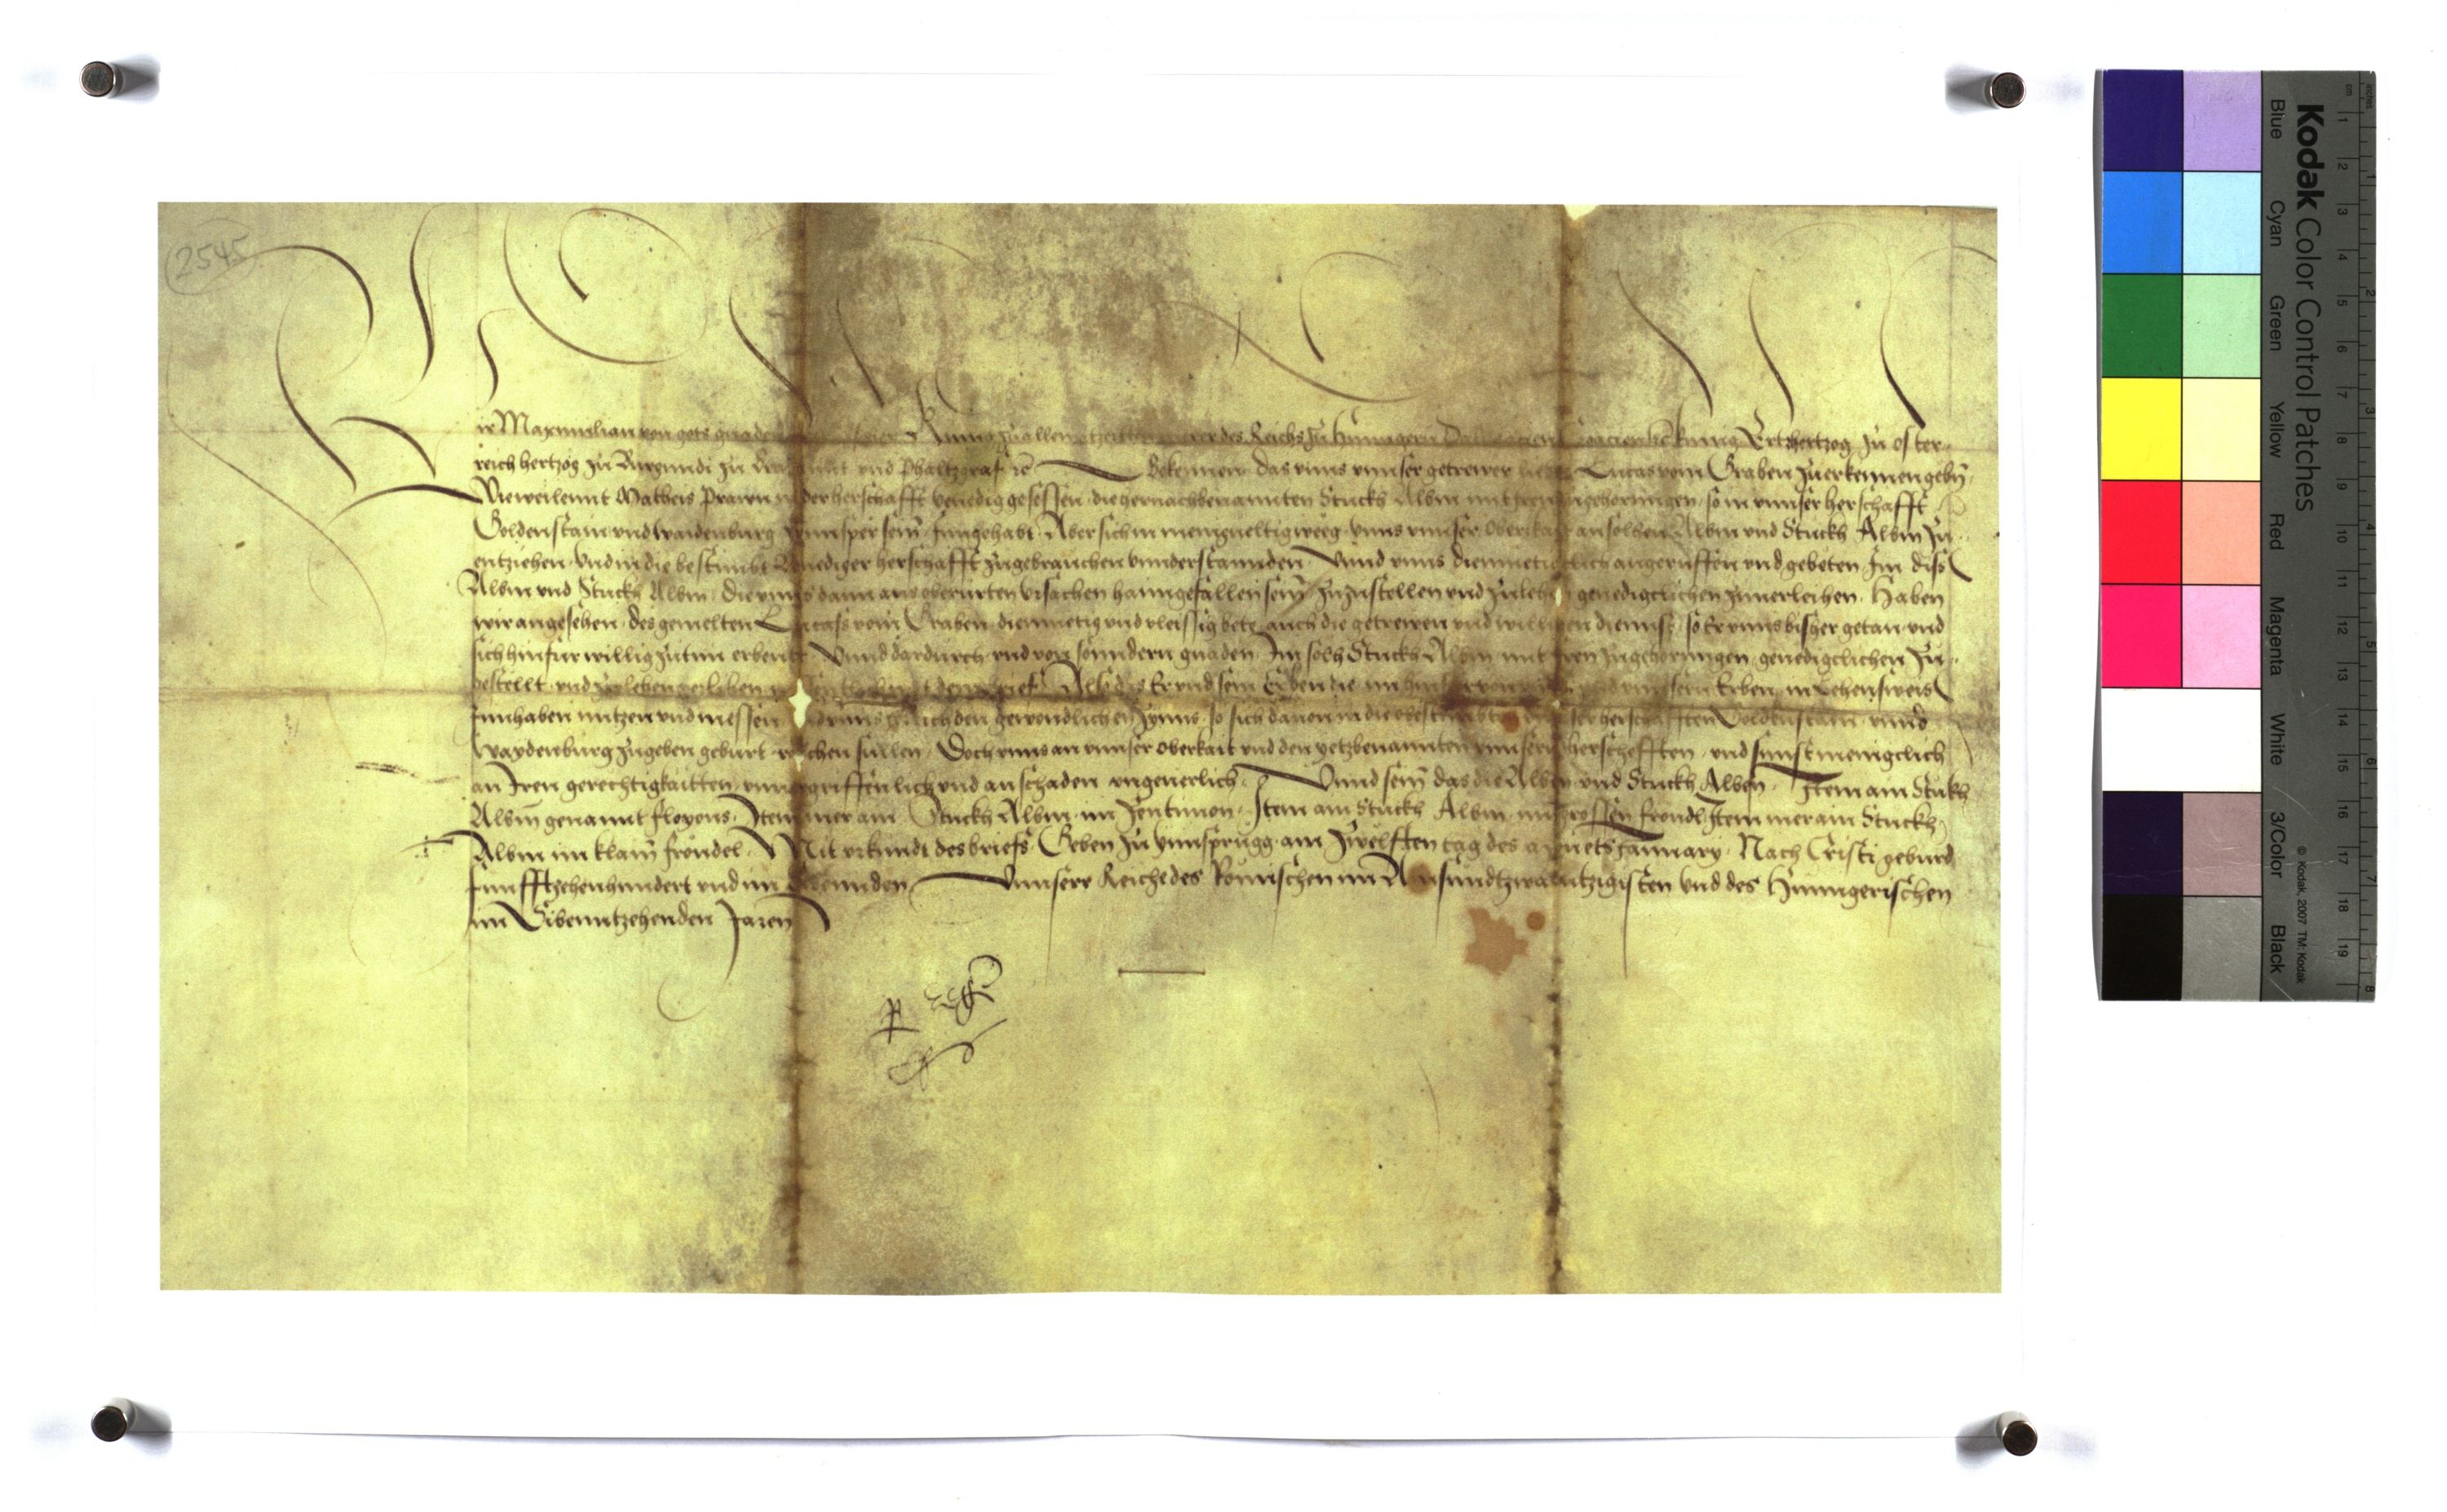 2545
Wir Maximilian von gots gnaden Kunig zu allen tzeiten merer des Reichs zu Hunngern Dalmatien Croacien kunig Ertzhertzog zu Oster-
reich hertzog zu Burgundi zu Brabannt und phaltzgraf Bekennen das unns unnser getrewer lieber Lucas vom Graben zuerkennen gebn
Wieweilennt Matheis Prawn in der herschafft Venedig gesessen die hernachbenannten Stuckh Albm mit iren zugehorungen so in unnser herschafft
Goldenstain und waidenburg Inngehabt Aber sich in menigueltig weeg unns unnser Oberkait an solhen Albm und Stuckh Albm zu
entziehen und in die bestimbt Venediger herschafft zugebrauchen unnderstannden Unnd unns diemuetigclich angeruffen und gebeten Im diss
Albm und Stuckh Albm die unns dann aus oberurten ursachen haimgefallen sein zuzustellen und zulehen genedigclichen zuuerleihen Haben
wir angesehen des gemelten Lucass vom Graben diemuetig und vleissig bete auch die getrewen und willigen diennst so Er unns bisher getan und
sich hinfur willig zutun erbeut Unnd dardurch und von sonndern gnaden Im solh Stuckh Albm mit iren zugehorungen genedigclichen zu-
gestellt und zulehen verlihen dem brief Also das Er und sein Erben die nu hinfur von unns und unnsern Erben in Lehensweis
Innhaben nutzen und niessen und unns Jerlich den gewondlichen Zynns so sich dauon in die obestimbten unnser herschafften Goldenstain unnd
Waydenburg zugeben geburt raichen sullen Doch unns an unnser Oberkait und den yetzbenannten unnsern herschefften und sunst menigclich
an Iren gerechtigkaitten unuergriffenlich und an schaden ungeuerlich Unnd sein das die Albm und Stuckh Alben Item ain Stukh
Albm genannt floyons Item mer ain Stuckh Albm im Jentinon Item ain Stuckh Albm im Grossen frondl Item mer ain Stuckh
Albm im klain frondel Mit urkundt des briefs Geben zu Ynnsprugg am zwelfften tag des monets January Nach Cristi geburd
funfftzehenhundert und im Sibennden Unnserr Reiche des Romischen im Ainsundtzwaintzigisten und des Hunngerischen
im Sibenntzehenden Jaren
Kodak Color Control Patches
Blue Cyan Green Yellow Red Magenta White 3/Color Black
© Kodak, 2007 TM: Kodak
cm 1 2 3 4 5 6 7 8 9 10 11 12 13 14 15 16 17 18 19
inches 1 2 3 4 5 6 7 8